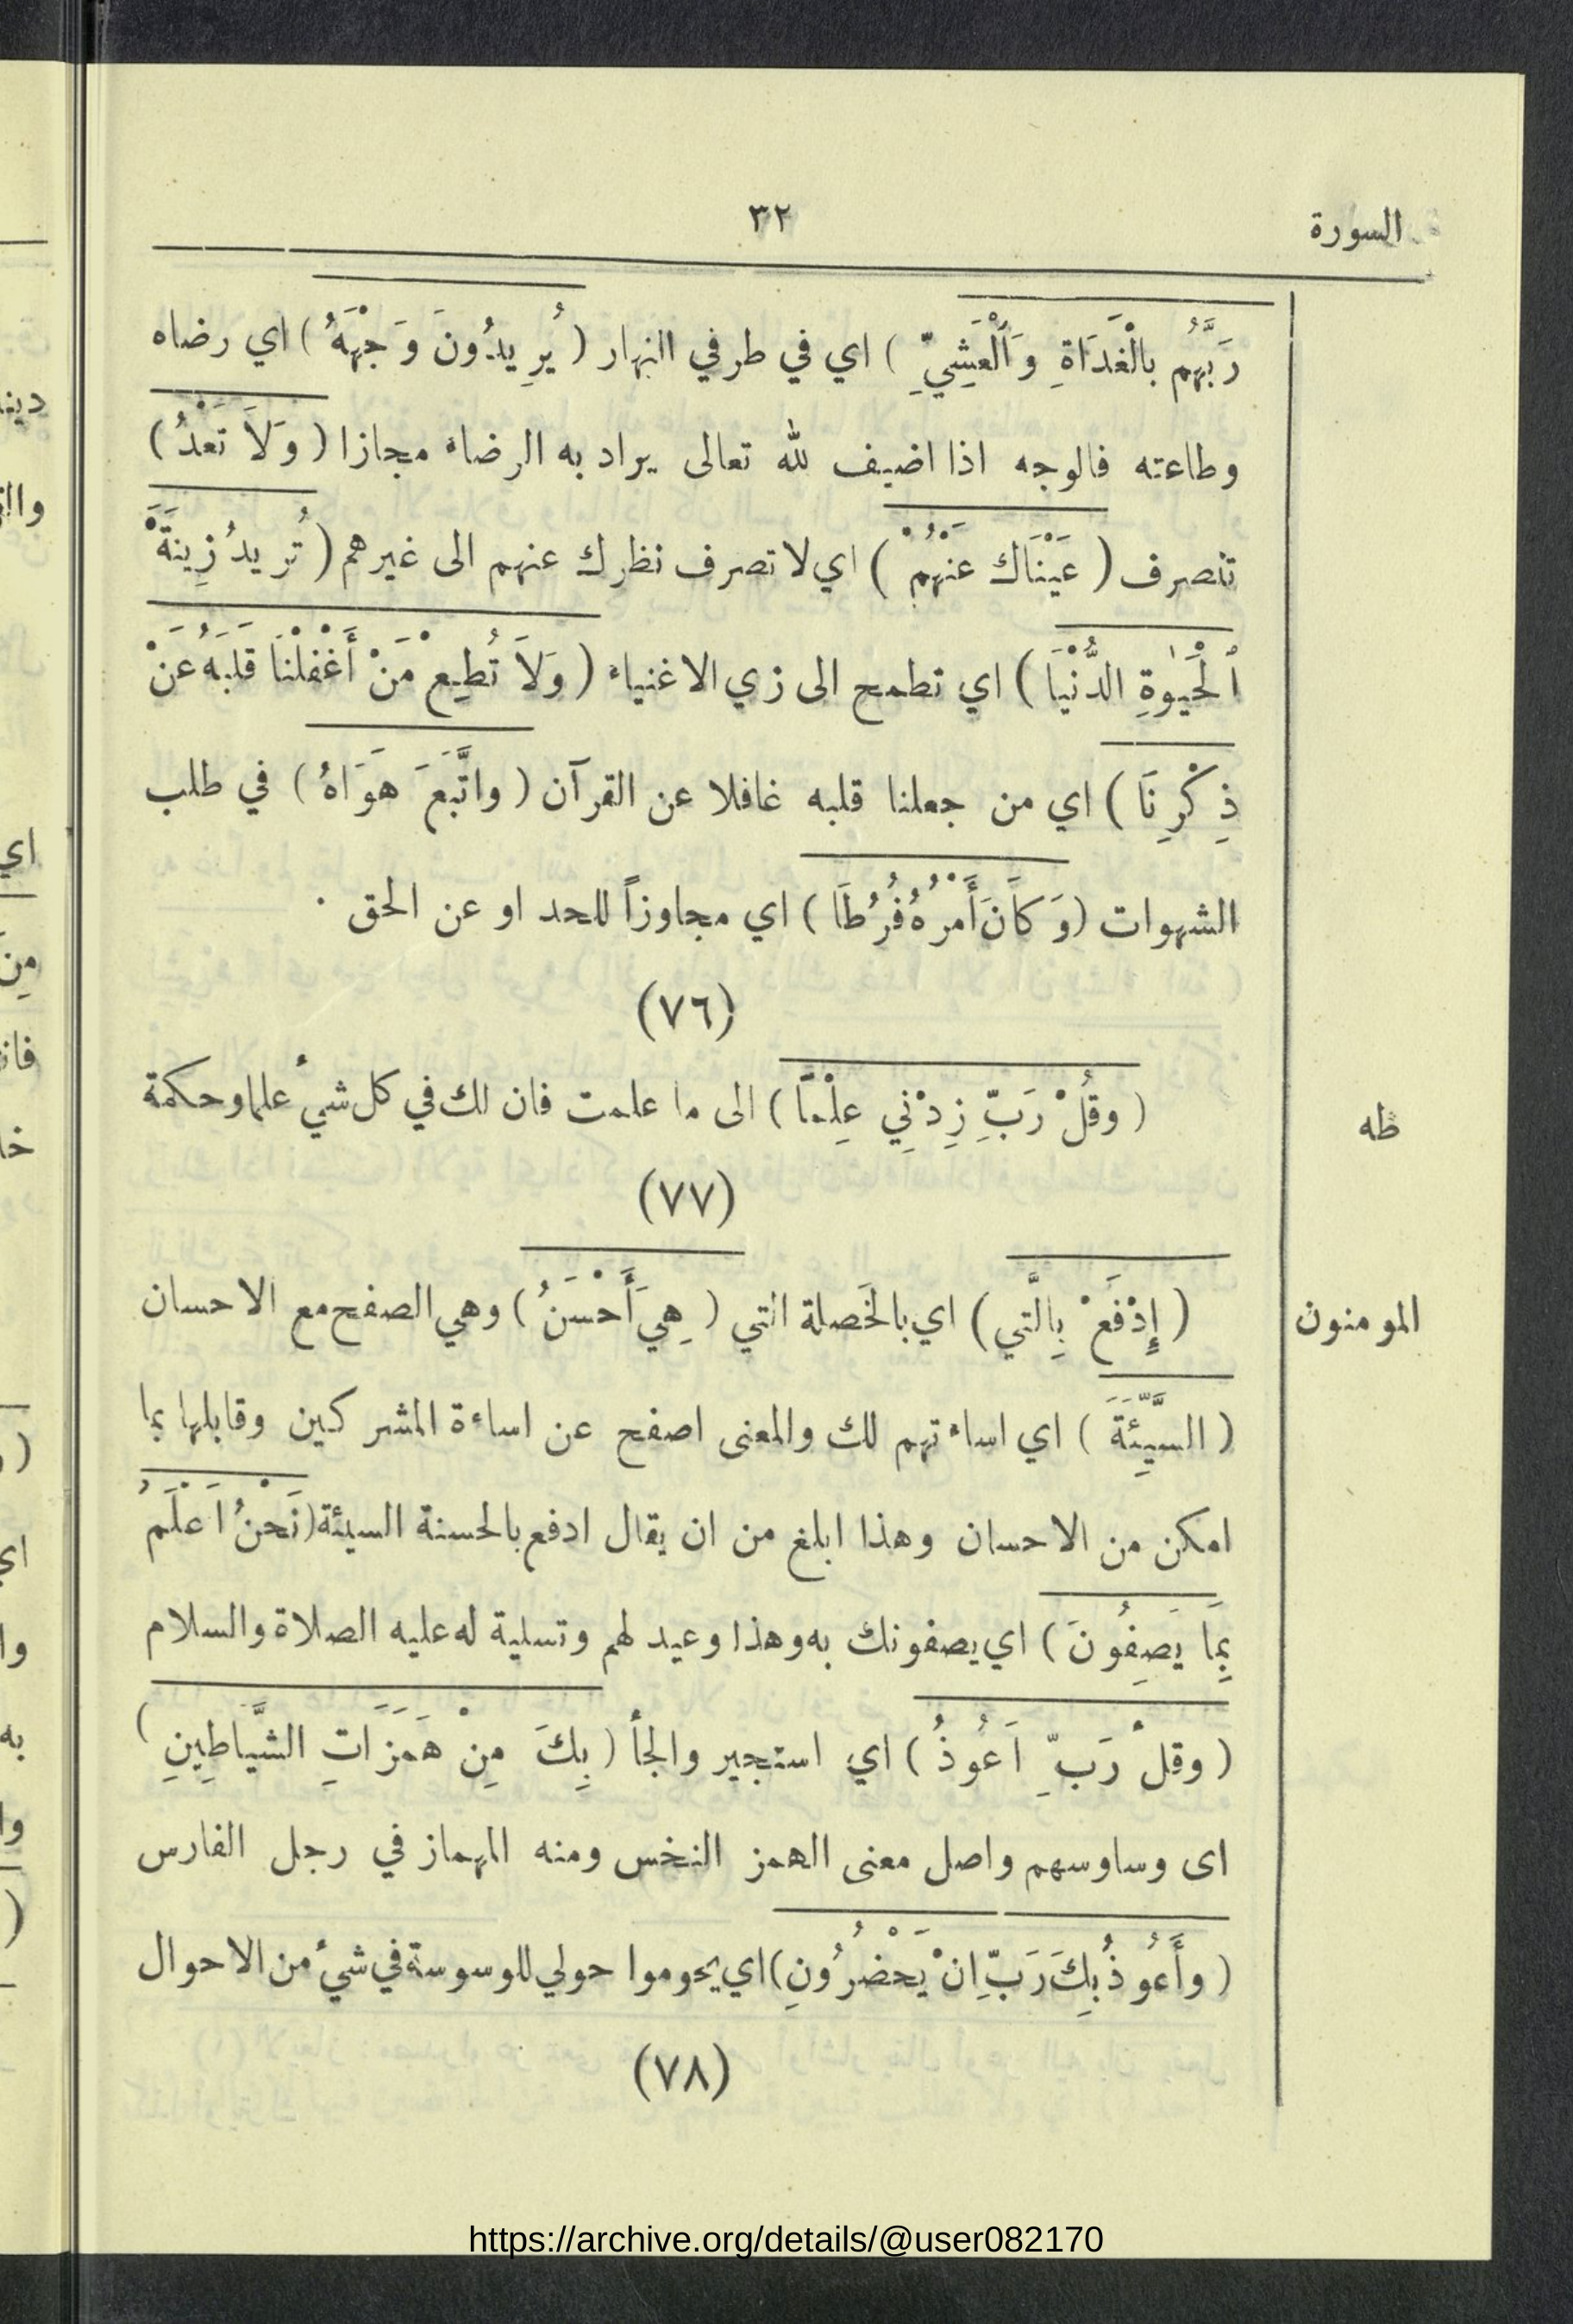 السورة
٣٢
رَبَّهُم بالْغَدَاةِ وَٱلْعَشِيِّ ) اي في طرفي النهار ( يُرِيدُونَ وَجْهَهُ ) اي رضاه
وطاعته فالوجه اذا اضيف لله تعالى يراد به الرضاء مجازا ( وَلَا تَعْدُ )
تنصرف ( عَيْنَاكَ عَنْهُمْ ) اي لا تصرف نظرك عنهم الى غيرهم ( تُرِيدُ زِينَةَ
ٱلْحَيٰوةِ الدُّنْيَا ) اي تطمح الى زي الاغنياء ( وَلَا تُطِعْ مَنْ أَغْفَلْنَا قَلْبَهُ عَنْ
ذِكْرِنَا ) اي من جعلنا قلبه غافلا عن القرآن ( واتَّبَعَ هَوَاهُ ) في طلب
الشهوات ( وَكَانَ أَمْرُهُ فُرُطًا ) اي مجاوزاً للحد او عن الحق .
(٧٦)
طه
( وقُلْ رَبِّ زِدْنِي عِلْمًا ) الى ما علمت فان لك في كل شيء علما وحكمة
(٧٧)
المومنون
( إِدْفَعْ بِالَّتِي ) اي بالخَصلة التي ( هِيَ أَحْسَنُ ) وهي الصفح مع الاحسان
( السَّيِّئَةَ ) اي اساءتهم لك والمعنى اصفح عن اساءة المشركين وقابلها بما
امكن من الاحسان وهذا ابلغ من ان يقال ادفع بالحسنة السيئة ( نَحْنُ اَعْلَمُ
بِمَا يَصِفُونَ ) اي يصفونك به وهذا وعيد لهم وتسلية له عليه الصلاة والسلام
( وقلْ رَبِّ اَعُوذُ ) اي استجير والجأ ( بِكَ مِنْ هَمَزَاتِ الشَّيَاطِينِ )
اى وساوسهم واصل معنى الهمز النخس ومنه المهماز في رجل الفارس
( وأَعُوذُ بِكَ رَبِّ اِنْ يَحْضُرُونِ ) اي يحوموا حولي للوسوسة في شيء من الاحوال
(٧٨)
https://archive.org/details/@user082170